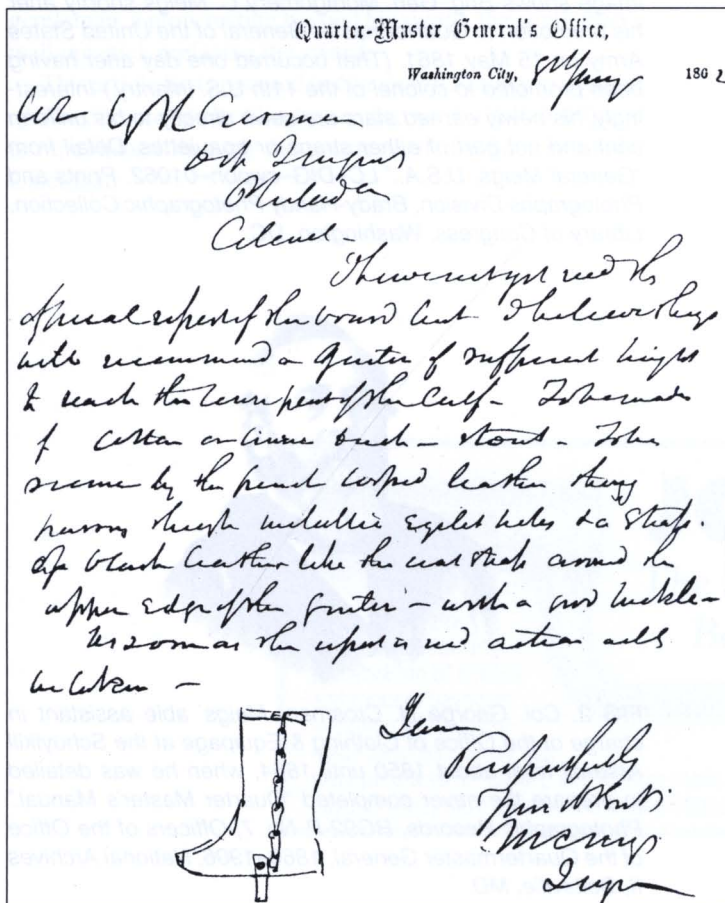 Quarter-Master General's Office,
Washington City, 1862
Col. G H Crosman
Philada
Colonel -
I have not yet recd the
official report of the board but I believe they
will recommend a Gaiter of sufficient height
to reach the lower part of the Calf - To be made
of cotton or linen duck stout - To be
secured by the leather string
passing through metallic eyelet holes & a strap
of black leather like the around the
upper edge of the Gaiter - with a buckle -
As soon as the report is recd action will
be taken -
Respectfully